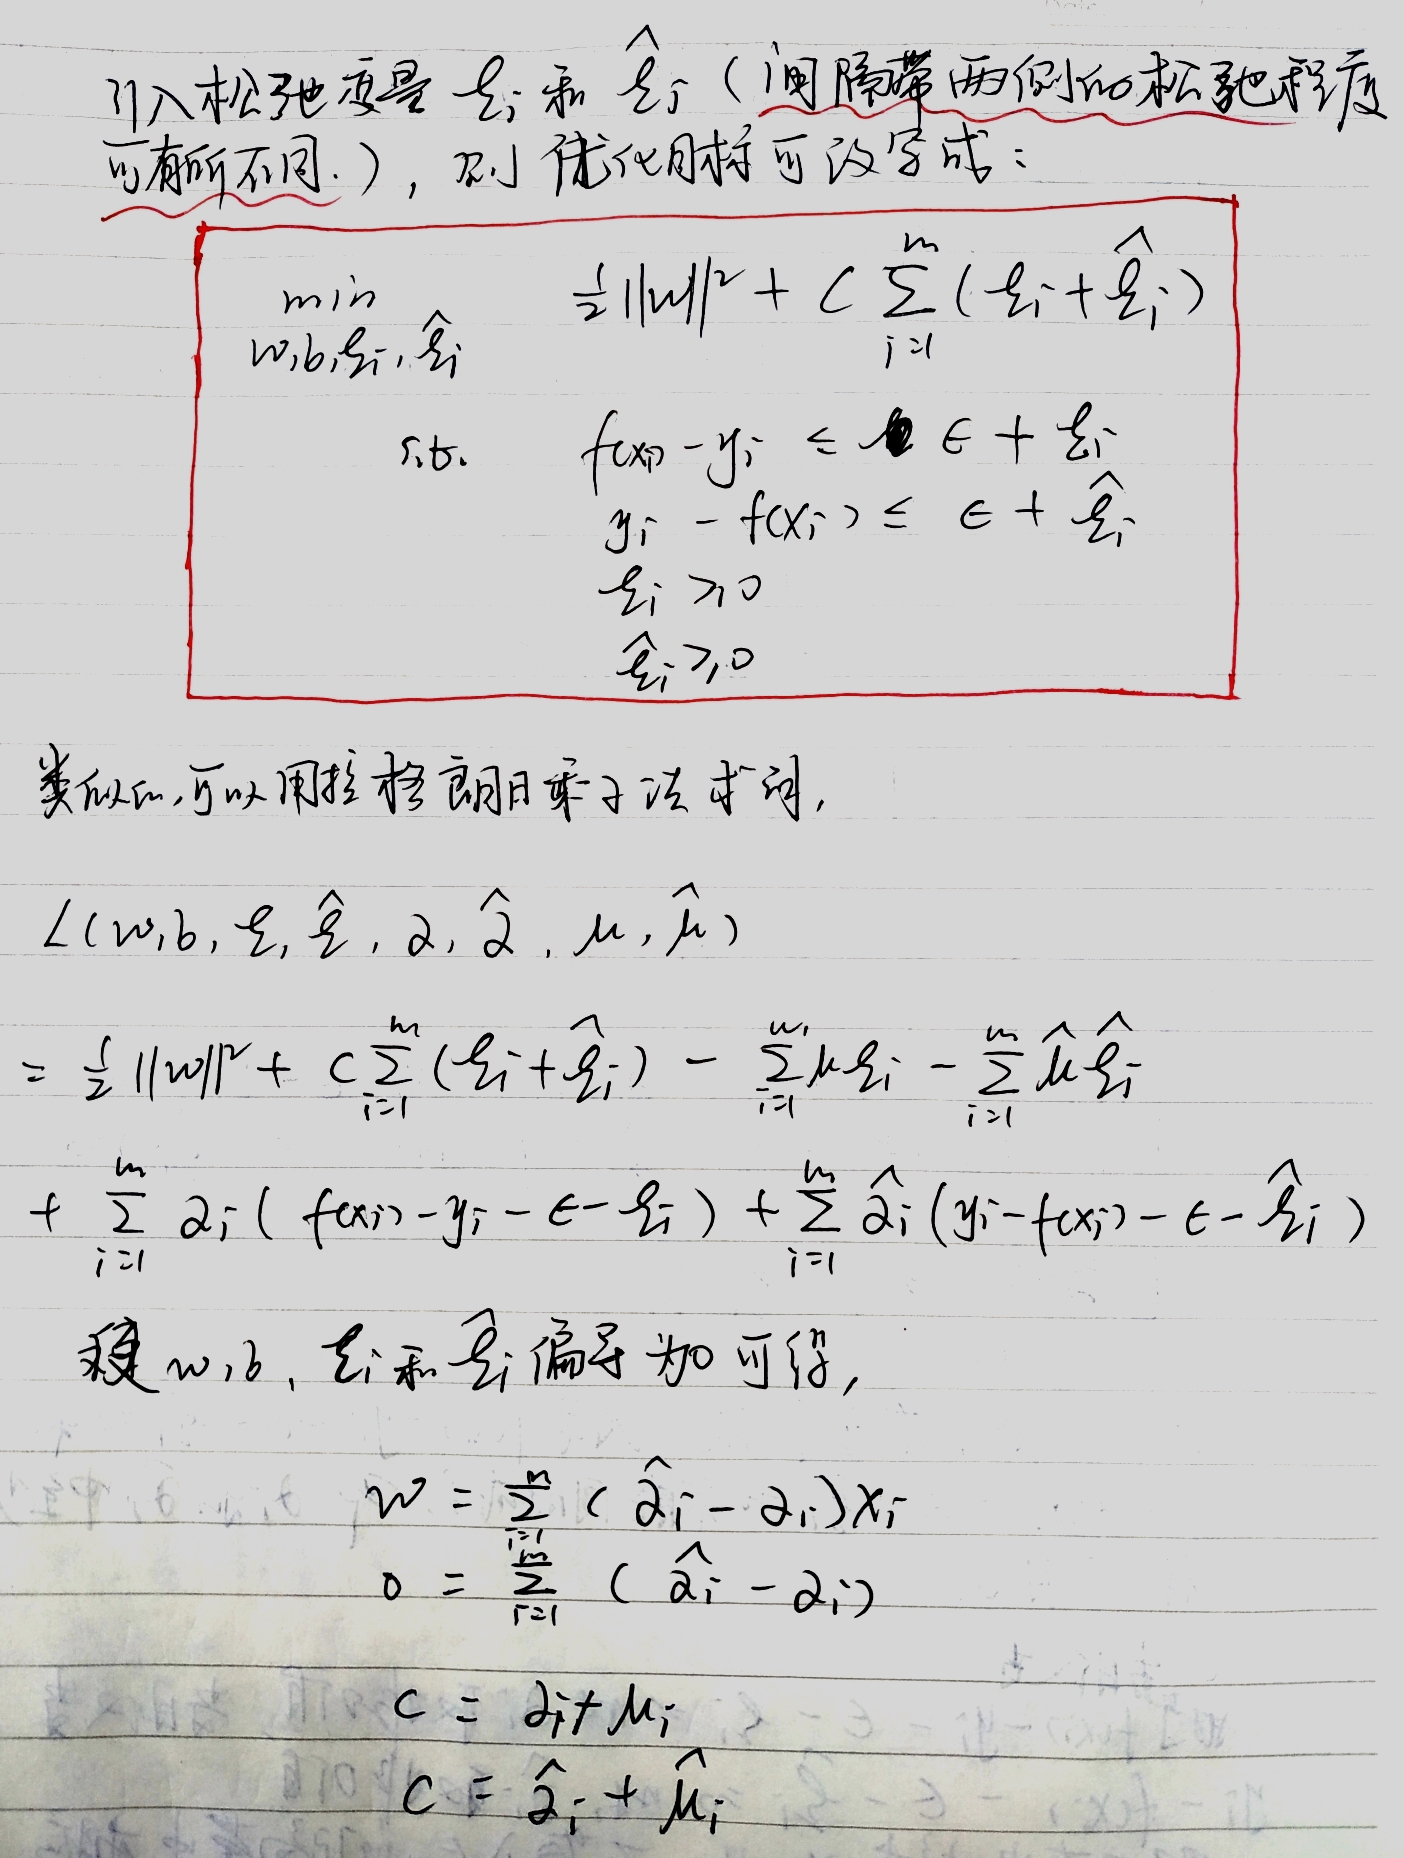 引入松弛变量 ξi 和 ξ̂i (间隔带两侧的松弛程度
可有所不同.), 则优化目标可改写成:
min 1/2 ||w||² + C ∑_{i=1}^{m} (ξi + ξ̂i)
w,b,ξi,ξ̂i
s.t. f(xi) - yi ≤ ϵ + ξi
yi - f(xi) ≤ ϵ + ξ̂i
ξi ≥ 0
ξ̂i ≥ 0
类似的,可以用拉格朗日乘子法求词,
L(w,b, ξ, ξ̂, α, α̂, μ, μ̂)
= 1/2 ||w||² + C ∑_{i=1}^{m} (ξi + ξ̂i) - ∑_{i=1}^{m} μ ξi - ∑_{i=1}^{m} μ̂ ξ̂i
+ ∑_{i=1}^{m} αi ( f(xi) - yi - ϵ - ξi ) + ∑_{i=1}^{m} α̂i ( yi - f(xi) - ϵ - ξ̂i )
w,b, ξi 和 ξ̂i 偏导为0可得,
w = ∑_{i=1}^{m} ( α̂i - αi ) xi
0 = ∑_{i=1}^{m} ( α̂i - αi )
C = αi + μi
C = α̂i + μ̂i